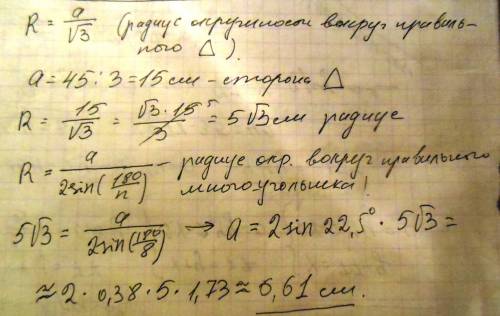 R = a/√3 (радиус окружности вокруг правиль-
ного △).
a = 45 : 3 = 15 см – сторона △
R = 15/√3 = √3 · 15⁵/3 = 5√3 см радиус
R = a/2sin(180/n) – радиус окр. вокруг правильного
многоугольника!
5√3 = a/2sin(180/8) → a = 2 sin 22,5° · 5√3 =
≈ 2 · 0,38 · 5 · 1,73 ≈ 6,61 см.